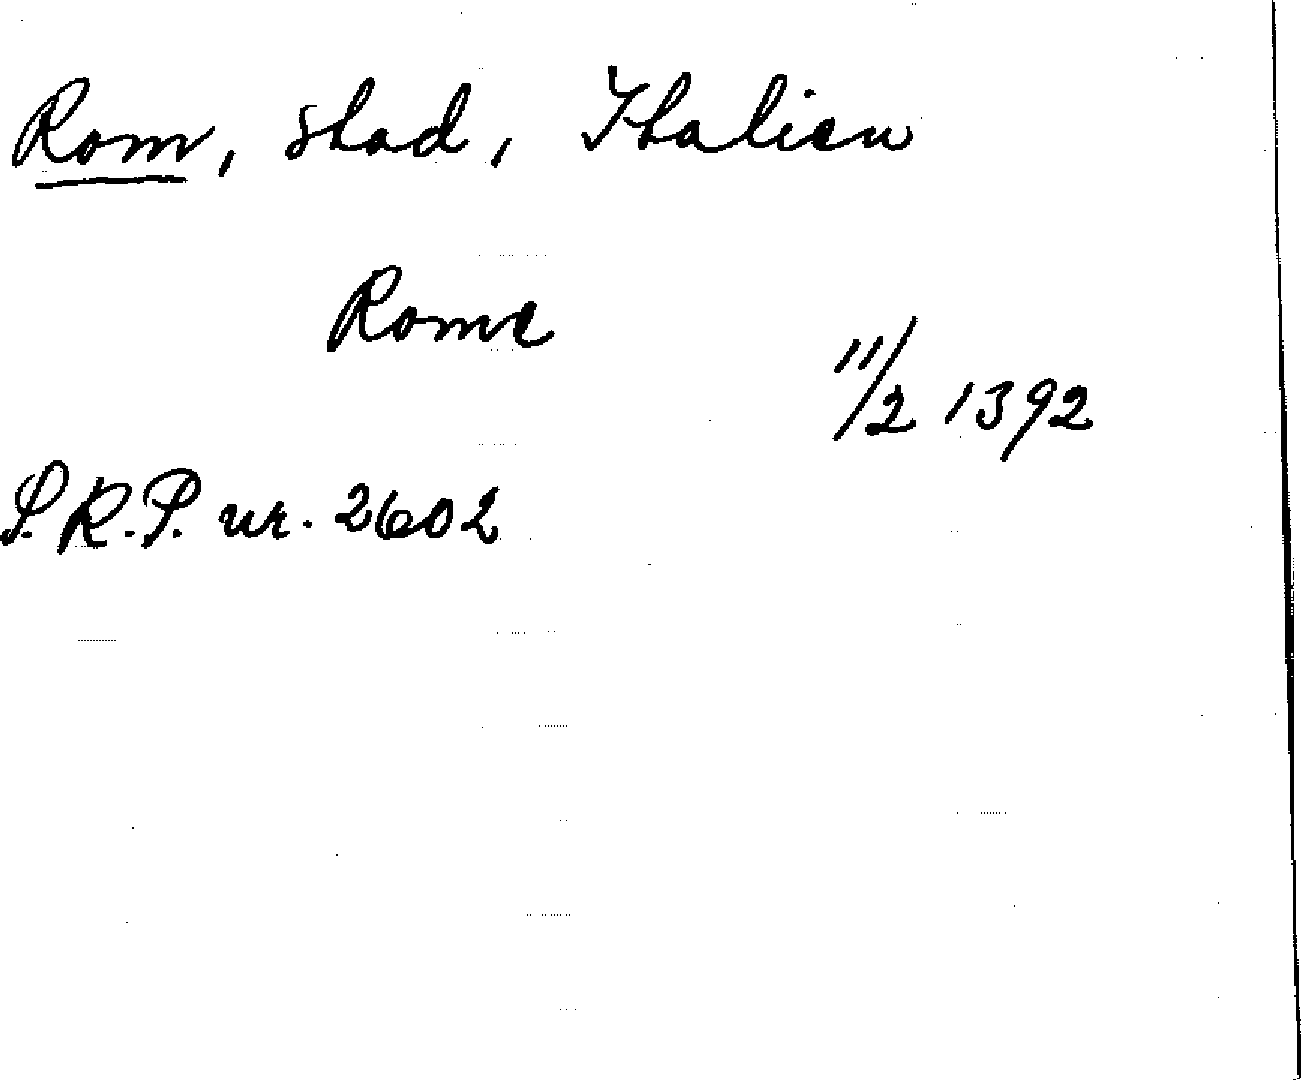 Rom, stad, Italien
Rome
11/2 1392
S.R.P. nr. 2602